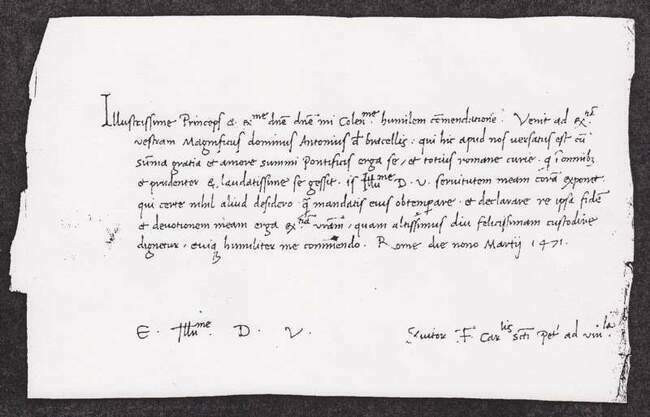 Illustrissime Princeps & exme dne dne mi Colenme humilem comendatione. Venit ad exna
vestram Magnificus dominus Antonius d bracellis: qui hic apud nos versatus est cu
summa gratia et amore summi Pontificis erga se, et totius romane curie. q i omnibz
et prudenter & laudatissime se gessit. is Illume D. V. servitutem meam cora exponet
qui certe nihil aliud desidero q mandatis eius obtemperare. et declarare re ipsa fide
et devotionem meam erga exna vram, quam altissimus diu felicissimam custodire
dignetur, eiusq humiliter me commendo. Rome die nono Martij 1471.
E. Illume. D. V.
Servitor F. Carlis scti Pet ad vincla